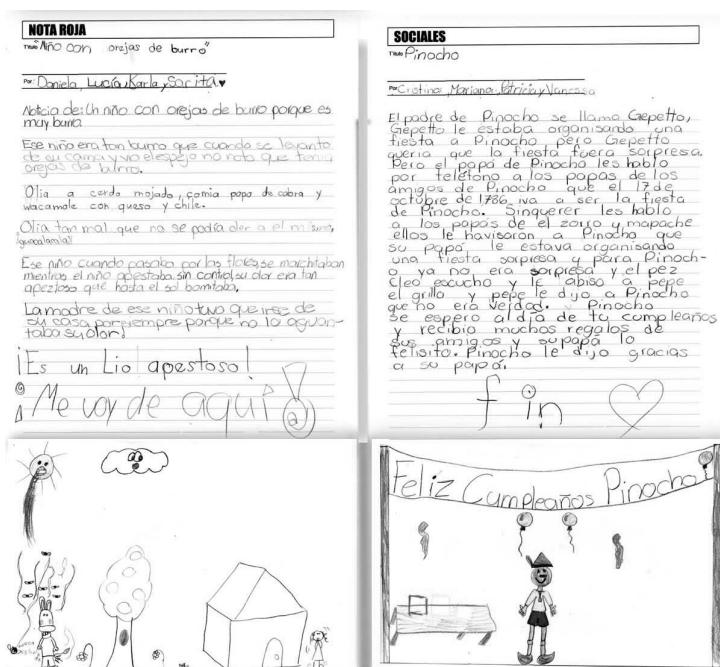 NOTA ROJA
Título "Niño con orejas de burro"
Por: Daniela, Lucía, Karla y Sarita
Noticia de: Un niño con orejas de burro porque es
muy burro
Ese niño era tan burro que cuando se levanto
de su cama y vio el espejo no noto que tenia
orejas de burro.
Olia a cerdo mojado, comia popo de cabra y
wacamole con queso y chile.
Olia tan mal que no se podia oler a el mismo,
Ese niño cuando pasaba por las flores se marchitaban
mientras el niño apestaba sin control, su olor era tan
apeztoso que hasta el sol bomitaba,
La madre de ese niño tuvo que irse de
su casa por siempre porque no lo aguan-
taba su olor!
¡Es un Lio apestoso!
¡Me voy de aquí!
SOCIALES
Título Pinocho
Por: Cristina, Mariana, Patricia y Vanessa
El padre de Pinocho se llama Gepetto,
Gepetto le estaba organisando una
fiesta a Pinocho pero Gepetto
queria que la fiesta fuera sorpresa.
Pero el papa de Pinocho les hablo
por telefono a los papas de los
amigos de Pinocho que el 17 de
octubre de 1786 iva a ser la fiesta
de Pinocho. Sinquerer les hablo
a los papas de el zorro y mapache
ellos le havisaron a Pinocho que
su papa le estava organisando
una fiesta sorpresa y para Pinoch-
o ya no era sorpresa y el pez
Cleo escucho y le abiso a pepe
el grillo y pepe le dijo a Pinocho
que no era verdad. y Pinocho
se espero al dia de tu cumpleaños
y recibio muchos regalos de
sus amigos y su papa lo
felisito. Pinocho le dijo gracias
a su papa.
fin
Feliz Cumpleaños Pinocho